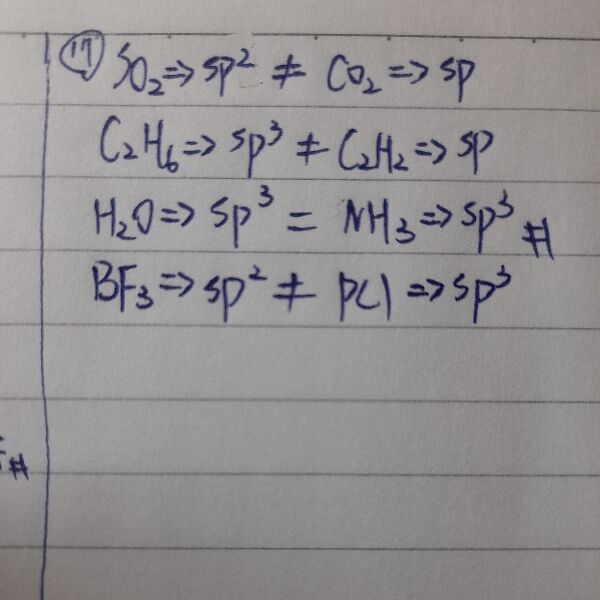 ⑰ SO₂ ⇒ sp² ≠ CO₂ ⇒ sp
C₂H₆ ⇒ sp³ ≠ C₂H₂ ⇒ sp
H₂O ⇒ sp³ = NH₃ ⇒ sp³ #
BF₃ ⇒ sp² ≠ PCl ⇒ sp³
#